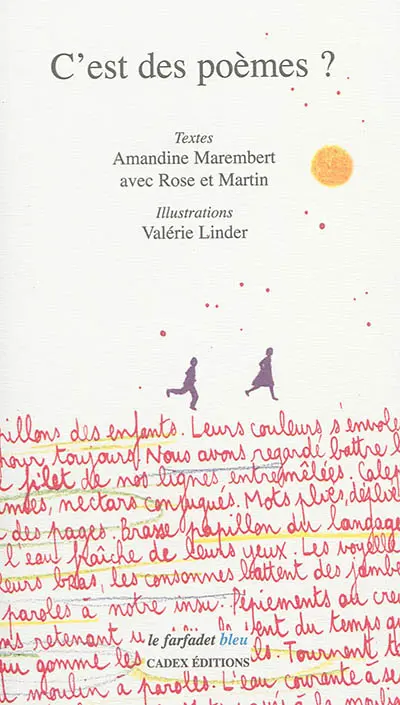 C'est des poèmes ?
Textes
Amandine Marembert
avec Rose et Martin
Illustrations
Valérie Linder
pillons des enfants. Leurs couleurs s'envole
pour toujours. Nous avons regardé battre l
filet de nos lignes entremêlées.
nectars conjugués. Mots pliés,
des pages. Brasse papillon du langage
l'eau fraîche de leurs yeux. Les voyelle
leurs bras, les consonnes battent des jambe
paroles à notre insu. Pépiements au creu
retenant du temps qu
le farfadet bleu
gomme les ls. Tournent
CADEX ÉDITIONS
moulin à paroles. L'eau courante à se